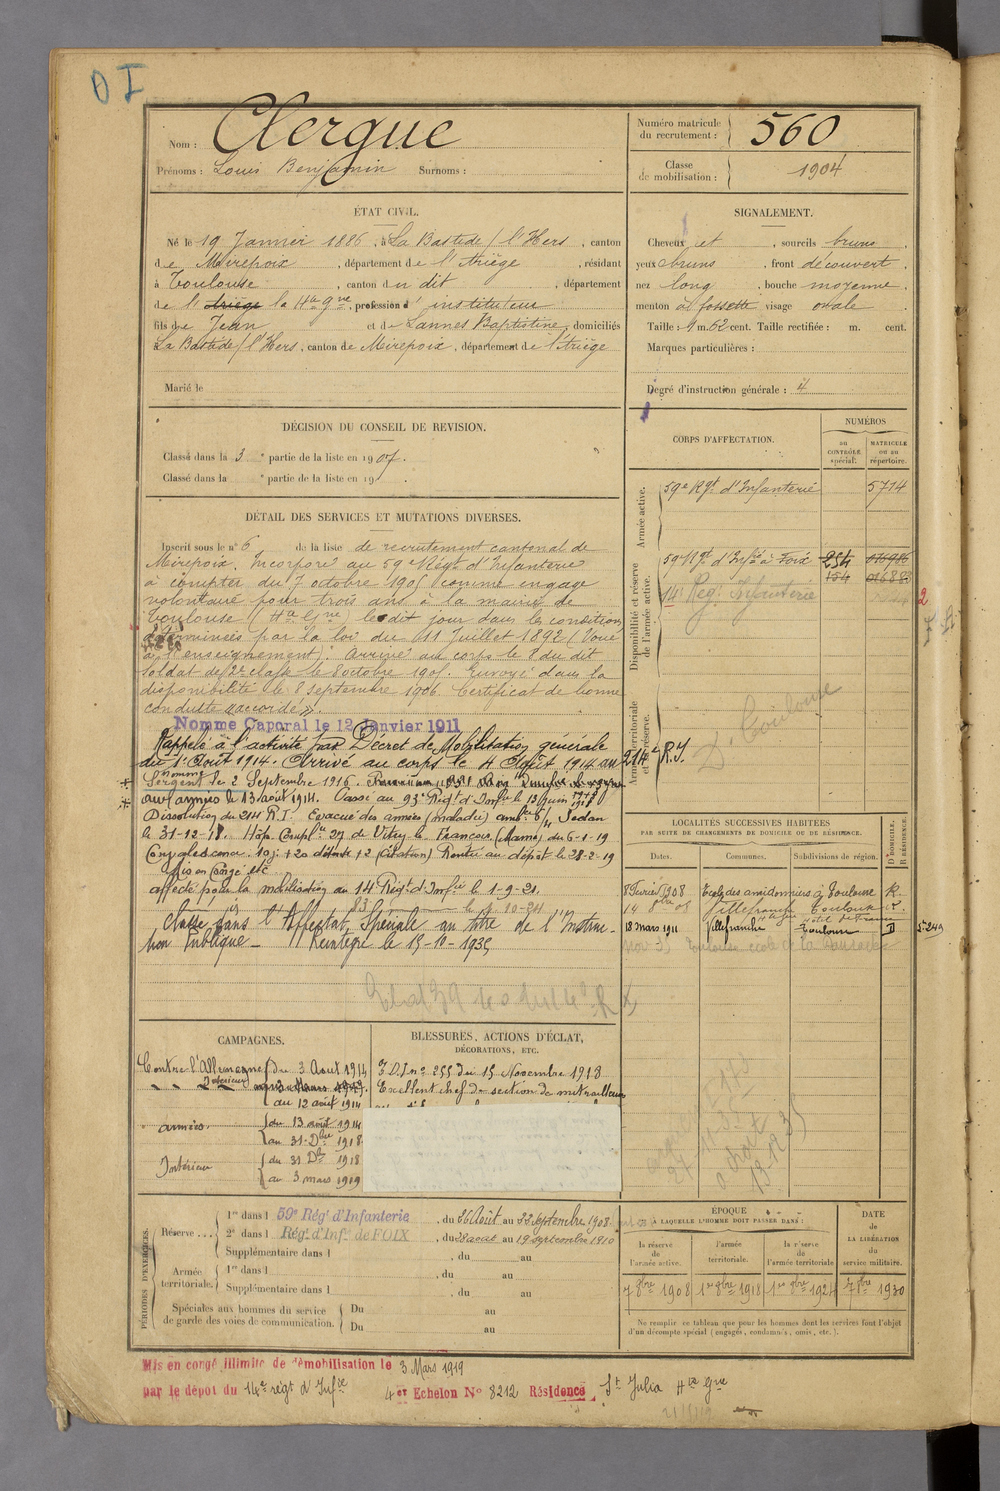 D I
Nom : Clergue
Prénoms : Louis Benjamin Surnoms :
Numéro matricule du recrutement : 560
Classe de mobilisation : 1904
ÉTAT CIVIL.
Né le 19 Janvier 1886, à La Bastide s/ l'Hers, canton
de Mirepoix, département de l'Ariège, résidant
à Toulouse, canton du dit, département
de l'Ariège la Hte Gne, profession d'instituteur
fils de Jean et de Lannes Baptistine, domiciliés
à La Bastide s/ l'Hers, canton de Mirepoix, département de l'Ariège
Marié le
SIGNALEMENT.
Cheveux et, sourcils bruns.
yeux bruns, front découvert.
nez long, bouche moyenne.
menton à fossette visage ovale.
Taille : 1 m. 62 cent. Taille rectifiée : m. cent.
Marques particulières :
Degré d'instruction générale : 4
DÉCISION DU CONSEIL DE REVISION.
Classé dans la 3e partie de la liste en 1907.
Classé dans la e partie de la liste en 19
DÉTAIL DES SERVICES ET MUTATIONS DIVERSES.
Inscrit sous le n° 6 de la liste de recrutement cantonal de
Mirepoix. Incorporé au 59e Régt d'Infanterie
à compter du 7 octobre 1905 comme engagé
volontaire pour trois ans à la mairie de
Toulouse (Hte Gne) le dit jour dans les conditions
déterminées par la loi du 11 Juillet 1892 (Voué
à l'enseignement). Arrivé au corps le 8 du dit
soldat de 2e classe le 8 octobre 1905. Envoyé dans la
disponibilité le 8 septembre 1906. Certificat de bonne
conduite "accordé".
Nommé Caporal le 12 Janvier 1911
Rappelé à l'activité par Décret de Mobilisation générale
du 1er Août 1914. Arrivé au corps le 4 Août 1914 au 214e R.I.
nommé
Sergent le 2 Septembre 1916.
aux armées le 13 août 1914. Passé au 93e Régt d'Infie le 13 juin 1918
Dissolution du 214 R.I. Evacué des armées (maladie) Sedan
le 31-12-18. Hôp. Compl. 27 de Vitry le François (Marne) du 6-1-19
Convalescence. 10 j. + 20 détente + 2 (citation) Rentré au dépôt le 28-2-19
Mis en congé etc
affecté pour la mobilisation au 14 Régt d'Infie le 1-9-21.
83
Classé dans l'Affectat. Spéciale au titre de l'Instruc-
tion Publique - Réintégré le 15-10-1935
CORPS D'AFFECTATION.
NUMÉROS
au CONTRÔLE spécial.
MATRICULE ou au répertoire.
Armée active.
59e Rgt d'Infanterie 5714
Disponibilité et réserve de l'armée active.
59e Rgt d'Infie à Foix 254
154
14e Reg. Infanterie
Armée territoriale et sa réserve.
Dt Toulouse
LOCALITÉS SUCCESSIVES HABITÉES
PAR SUITE DE CHANGEMENTS DE DOMICILE OU DE RÉSIDENCE.
Dates. Communes. Subdivisions de région. D DOMICILE. R RÉSIDENCE.
8 Février 1908 Ecole des amidonniers à Toulouse R
14 8bre 08 Villefranche Toulouse R.
18 mars 1911 Villefranche Toulouse D
CAMPAGNES.
Contre l'Allemagne
Intérieur
du 3 Août 1914
au 12 août 1914
armées.
du 13 août 1914
au 31 Dbre 1918
Intérieur
du 31 Dbre 1918
au 3 mars 1919
BLESSURES, ACTIONS D'ÉCLAT, DÉCORATIONS, ETC.
E.D.I n° 255 du 15 Novembre 1918
Excellent chef de section de mitrailleurs
PÉRIODES D'EXERCICES.
Réserve... 1re dans l 59e Régt d'Infanterie, du 26 Août au 22 septembre 1908
2e dans l Régt d'Infie de FOIX, du 28 août au 19 septembre 1910
Supplémentaire dans l , du au
Armée territoriale. 1re dans l , du au
Supplémentaire dans l , du au
Spéciales aux hommes du service de garde des voies de communication. Du au
Du au
ÉPOQUE
À LAQUELLE L'HOMME DOIT PASSER DANS :
la réserve de l'armée active.
l'armée territoriale.
la réserve de l'armée territoriale
DATE de LA LIBÉRATION du service militaire.
7 8bre 1908 1er 8bre 1918 1er 8bre 1924 7 8bre 1930
Ne remplir ce tableau que pour les hommes dont les services font l'objet
d'un décompte spécial (engagés, condamnés, omis, etc.).
Mis en congé illimité de démobilisation le 3 Mars 1919
par le dépôt du 14e régt d'Infie 4er Echelon N° 8212 Résidence St Julia Hte Gne